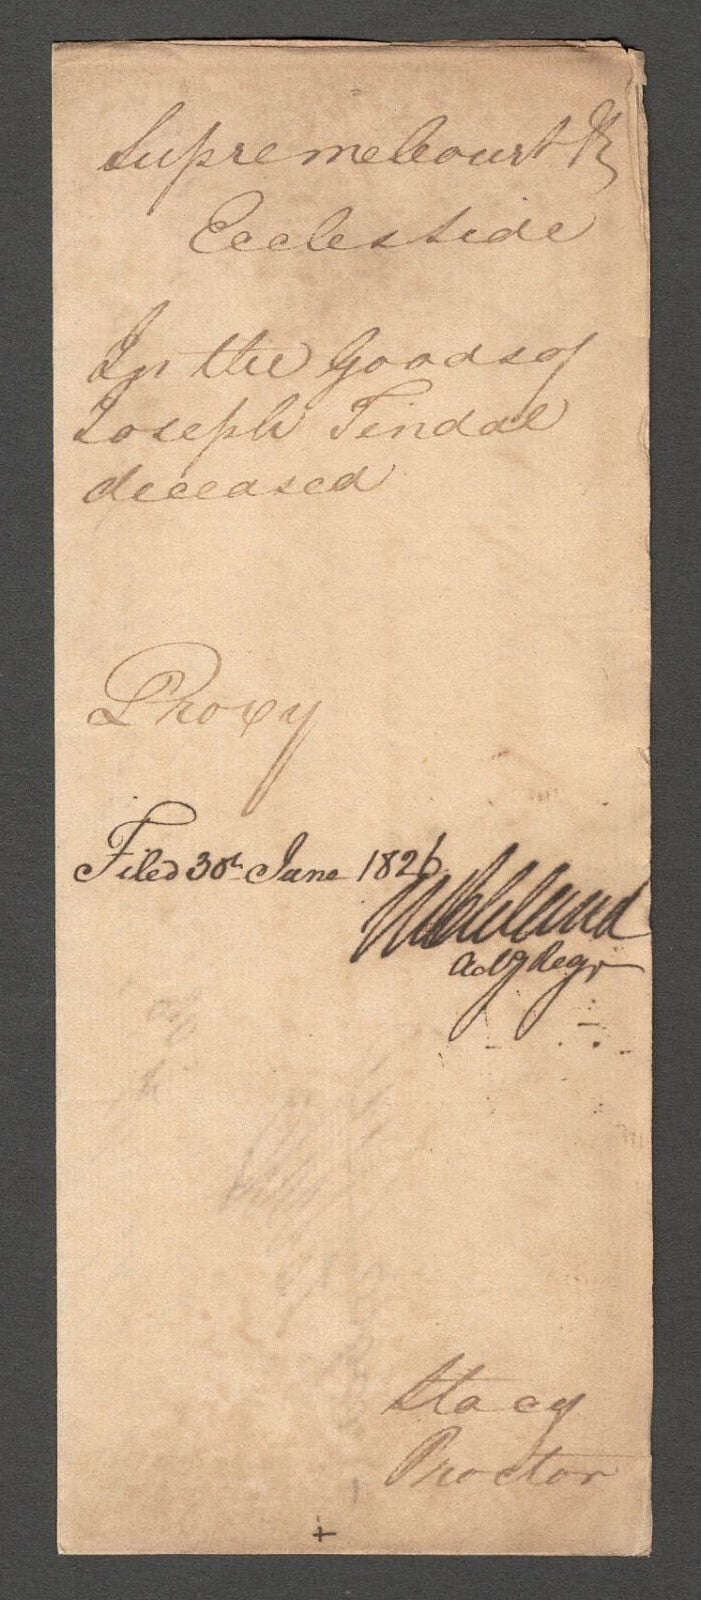 Supreme Court &
Eccles Side
In the Goods of
Joseph Tindal
deceased
Proxy
Filed 30th June 1826
Actg Regr
Stacy
Proctor